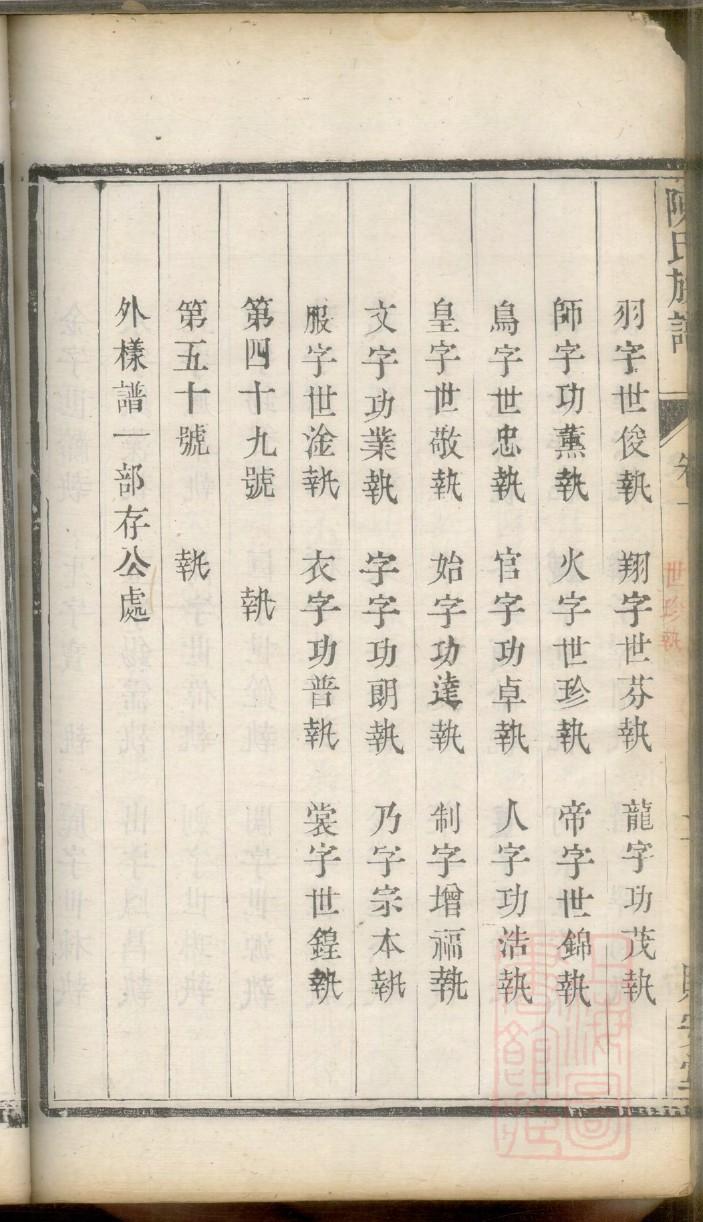 陳氏族譜
卷一
世珍執
羽字世俊執 翔字世芬執 龍字功茂執
師字功薰執 火字世珍執 帝字世錦執
鳥字世忠執 官字功卓執 人字功浩執
皇字世敬執 始字功達執 制字增福執
文字功業執 字字功朗執 乃字宗本執
服字世淦執 衣字功普執 裳字世鍠執
第四十九號 執
第五十號 執
外樣譜一部存公處
上海圖書館藏